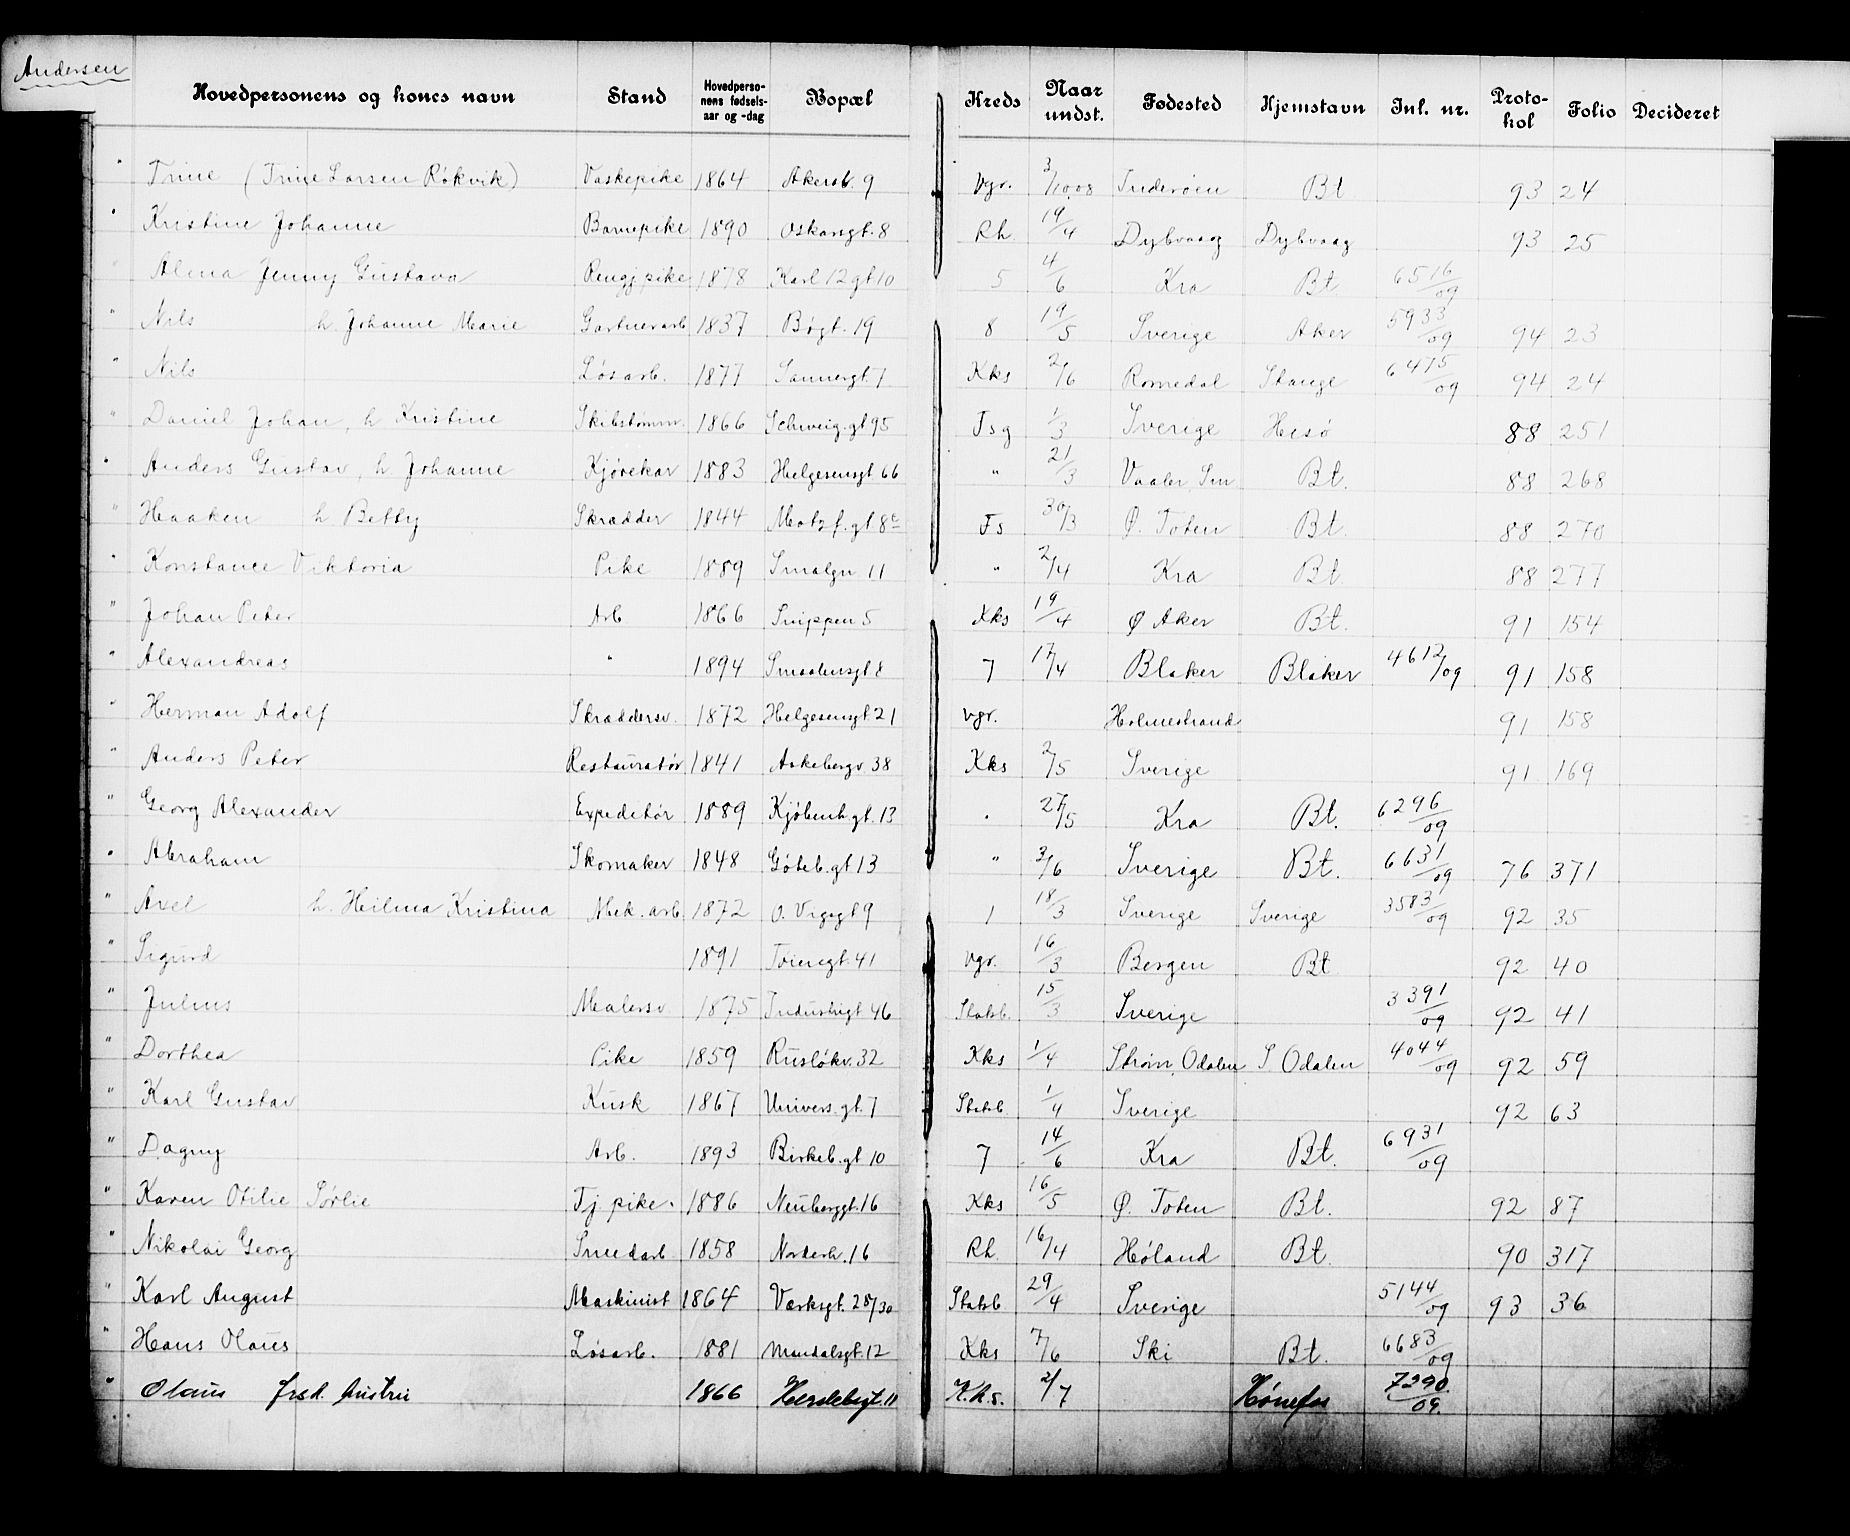 Andersen
Hovedpersonens og kones navn Stand Hovedperso-nens fødsels-aar og -dag Bopæl Kreds Naar undst. Fødested Hjemstavn Inl. nr. Proto-kol Folio Decideret
" Trine (Trine Larsen Røkvik) Vaskepike 1864 Akersb. 9 Vgr. 3/10.08 Inderøen Bt 93 24
" Kristine Johanne Barnepike 1890 Oskarsgt. 8 Rh. 19/4 Dybvaag Dybvaag 93 25
" Alma Jenny Gustava Rengj pike 1878 Karl 12 gt 10 5 4/6 Kra Bt 6516/09
" Nils h. Johanne Marie Gartnerarb 1837 Bøgt. 19 8 19/5 Sverige Aker 5933/09 94 23
" Nils Løsarb. 1877 Sannergt. 7 Kks 2/6 Romedal Stange 6475/09 94 24
" Daniel Johan, h Kristine Skibstømm. 1866 Schweig.gt 95 Fsg 1/3 Sverige Hisø 88 251
" Anders Gustav, h. Johanne Kjørekar 1883 Helgesensgt 66 " 21/3 Vaaler, Sm Bt. 88 268
" Haaken h Betty Skrædder 1844 Motzf.gt 8c Fs 30/3 Ø. Toten Bt. 88 270
" Konstance Viktoria Pike 1889 Smalgn 11 " 2/4 Kra Bt. 88 277
" Johan Peter Arb 1866 Snippen 5 Kks 19/4 Ø Aker Bt. 91 154
" Alexandreas " 1894 Smaalensgt 8 7 17/4 Blaker Blaker 4612/09 91 158
" Herman Adolf Skræddersv. 1872 Helgesensgt. 21 Vgr. Holmestrand 91 158
" Anders Peter Restauratør 1841 Aakebergv. 38 Kks 2/5 Sverige 91 169
" Georg Alexander Expeditør 1889 Kjøbenh.gt. 13 " 27/5 Kra Bt. 6296/09
" Abraham Skomaker 1848 Gøteb.gt 13 " 3/6 Sverige Bt. 6631/09 76 371
" Axel h. Heilma Kristina Mek. arb 1872 O. Vigsgt 9 1 18/3 Sverige Sverige 3583/09 92 35
" Sigurd 1891 Tøiengt. 41 Vgr. 16/3 Bergen Bt 92 40
" Julius Malersv. 1875 Industrigt 46 Statsb. 15/3 Sverige 3391/09 92 41
" Dorthea Pike 1859 Ruseløkv. 32 Kks 1/4 Strøm, Odalen S Odalen 4044/09 92 59
" Karl Gustav Kusk 1867 Univers.gt. 7 Statsb 1/4 Sverige 92 63
" Dagny Arb. 1893 Birkeb.gt 10 7 14/6 Kra Bt. 6931/09
" Karen Otilie Sørlie Tj. pike. 1886 Neuberggt. 16 Kks 16/5 Ø. Toten Bt. 92 87
" Nikolai Georg Smedarb 1858 Norderh. 16 Rh. 16/4 Høland Bt. 90 317
" Karl August Maskinist 1864 Værksgt. 28/30 Statsb 29/4 Sverige 5144/09 93 36
" Hans Olaus Løsarb. 1881 Mandalsgt. 12 Kks 7/6 Ski Bt. 6683/09
" Olaus frsd. hustru 1866 Herslebsgt. 11 K.k.s. 2/7 Hønefos 7290/09.